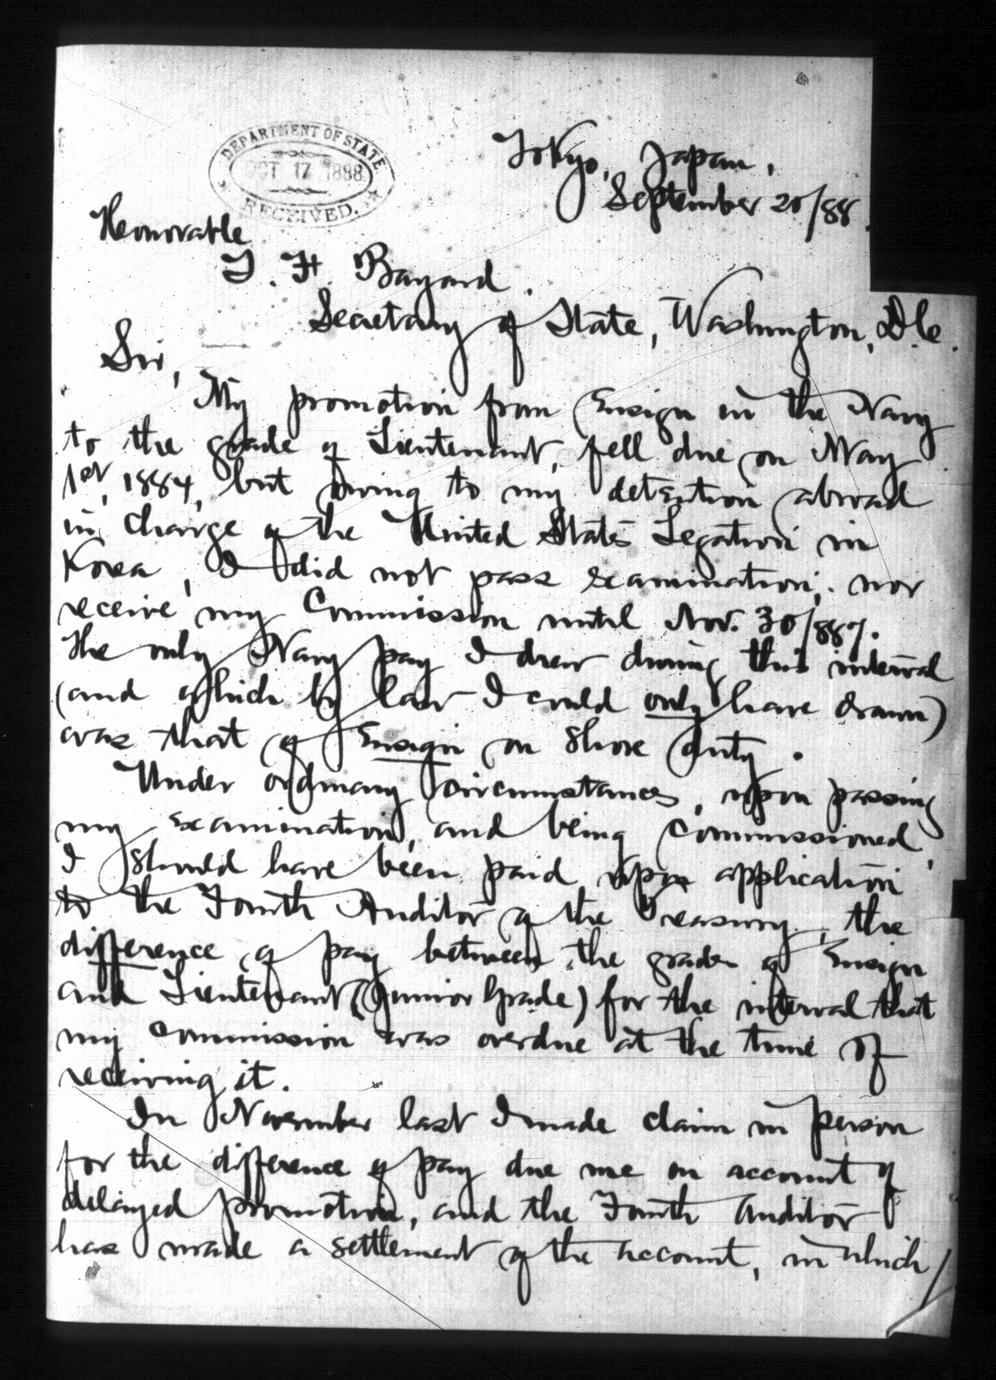 DEPARTMENT OF STATE
OCT 17 1888
RECEIVED.
Tokyo, Japan,
September 20/88.
Honorable
T. F. Bayard.
Secretary of State, Washington, D.C.
Sir,
My promotion from Ensign in the Navy
to the grade of Lieutenant, fell due on May
1st, 1884, but owing to my detention abroad
in charge of the United States Legation in
Korea, I did not pass examination, nor
receive my Commission until Nov. 30/887.
The only Navy pay I drew during this interval
(and which by law I could only have drawn)
was that of Ensign on shore duty.
Under ordinary circumstances, upon passing
my examination, and being commissioned,
I should have been paid upon application
to the Fourth Auditor of the Treasury, the
difference of pay between the grades of Ensign
and Lieutenant (Junior Grade) for the interval that
my commission was overdue at the time of
receiving it.
In November last I made claim in person
for the difference of pay due me on account of
delayed promotion, and the Fourth Auditor
has made a settlement of the account, in which